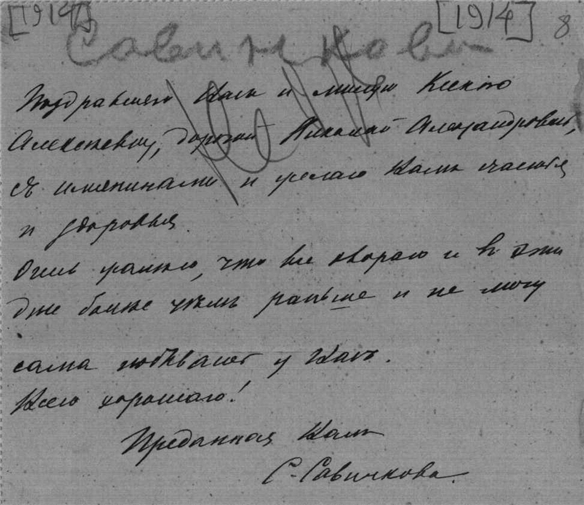 [1914] [1914] 8
Савинкова
Поздравляю Васъ и милую Ксенію
Алексѣевну, дорогой Николай Александровичъ,
съ имянинами и желаю Вамъ счастья
и здоровья.
Очень жалѣю, что все хвораю и въ эти
дни больше чѣмъ раньше и не могу
сама побывать у Васъ.
Всего хорошаго!
Преданная Вамъ
С. Савинкова.